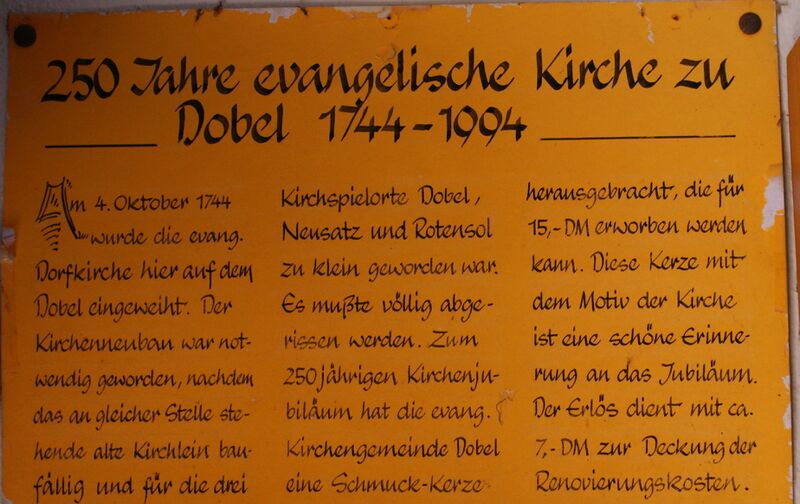 250 Jahre evangelische Kirche zu
Dobel 1744-1994
Am 4. Oktober 1744
wurde die evang.
Dorfkirche hier auf dem
Dobel eingeweiht. Der
Kirchenneubau war not-
wendig geworden, nachdem
das an gleicher Stelle ste-
hende alte Kirchlein bau-
fällig und für die drei
Kirchspielorte Dobel,
Neusatz und Rotensol
zu klein geworden war.
Es mußte völlig abge-
rissen werden. Zum
250jährigen Kirchenju-
biläum hat die evang.
Kirchengemeinde Dobel
eine Schmuck-Kerze
herausgebracht, die für
15,-DM erworben werden
kann. Diese Kerze mit
dem Motiv der Kirche
ist eine schöne Erinne-
rung an das Jubiläum.
Der Erlös dient mit ca.
7,-DM zur Deckung der
Renovierungskosten.